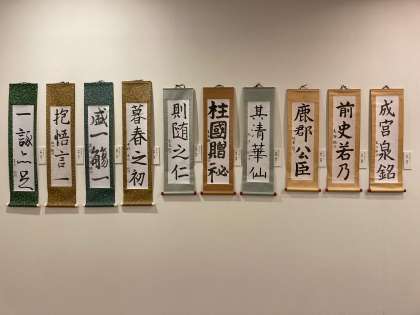 一詠亦足
抱悟言一
盛一觴一
暮春之初
則随之仁
柱國贈祕
其清華仙
鹿郡公臣
前史若乃
成宮泉銘